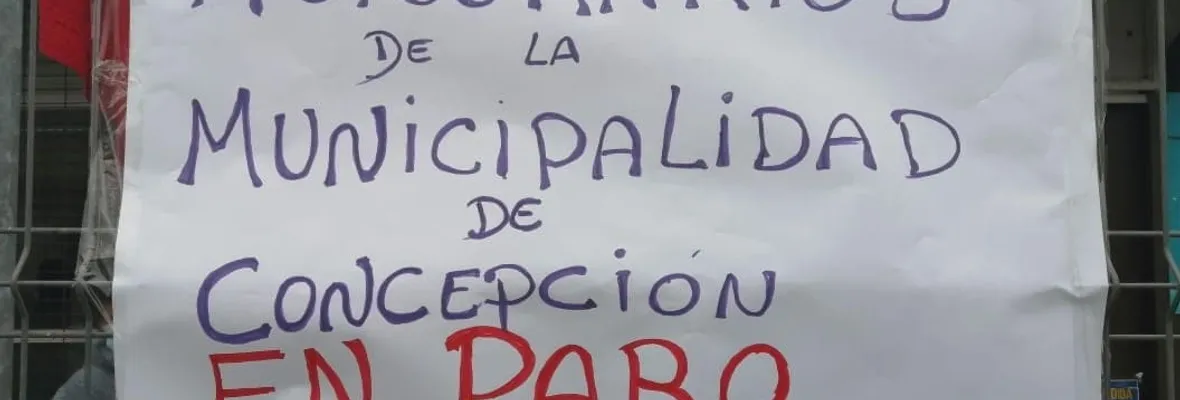 DE LA
MUNICIPALIDAD
DE
CONCEPCIÓN
EN PARO